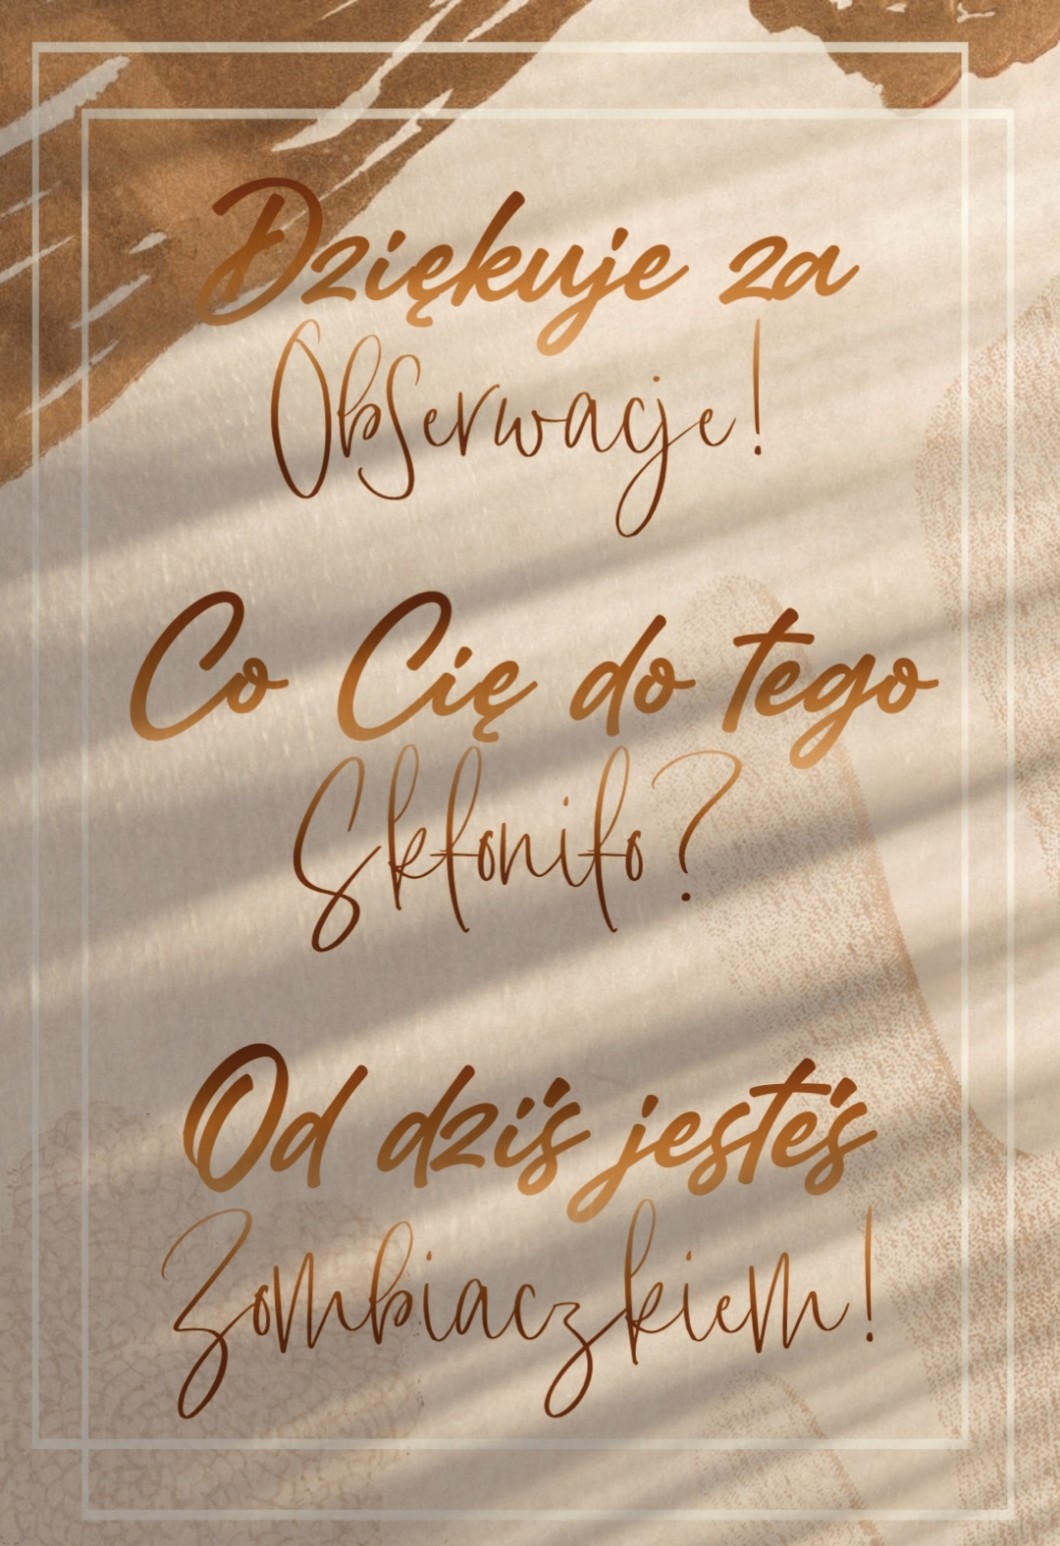 Dziękuje za
Obserwacje!
Co Cię do tego
Skłoniło?
Od dziś jesteś
Zombiaczkiem!